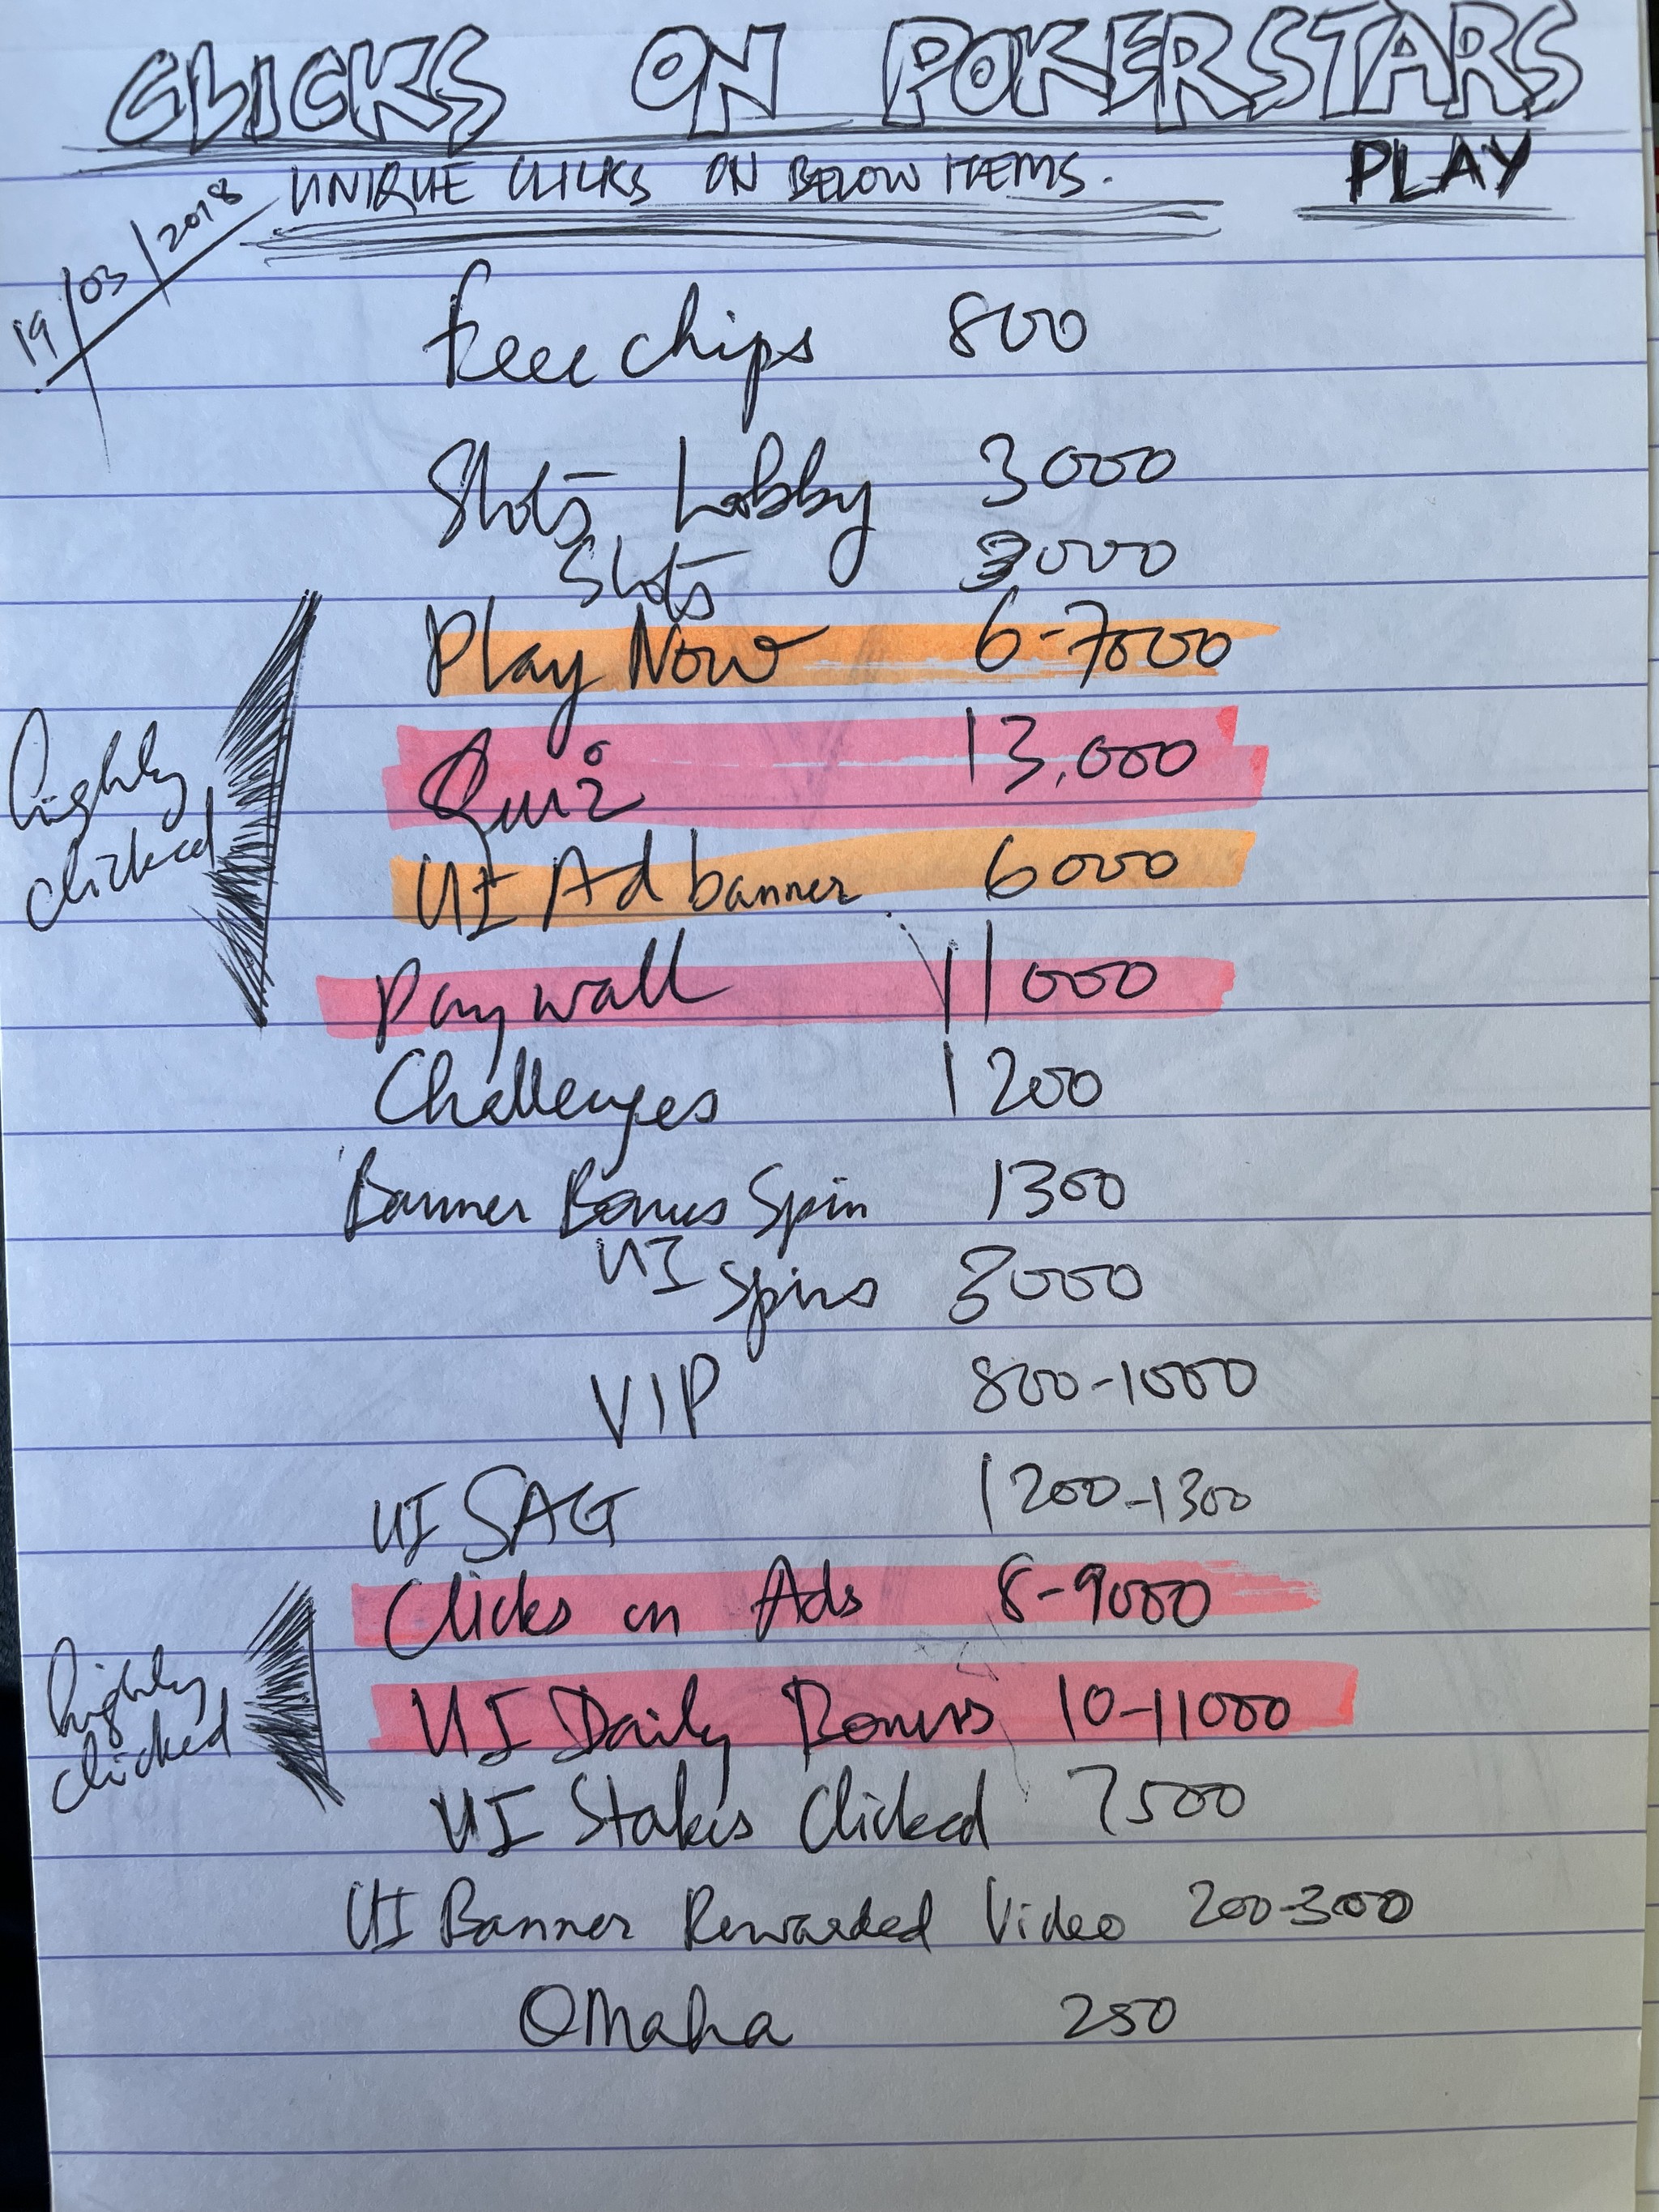 CLICKS ON POKERSTARS
PLAY
UNIQUE CLICKS ON BELOW ITEMS.
19/03/2018
free chips 800
Slots Lobby 3000
Slots 3000
Play Now 6-7000
Quiz 13,000
UI Ad banner 6000
Paywall 11000
highly
clicked
Challenges 1200
Banner Bonus Spin 1300
UI Spins 3000
VIP 800-1000
UI SAG 1200-1300
Clicks on Ads 8-9000
UI Daily Bonus 10-11000
highly
clicked
UI Stakes Clicked 7500
UI Banner Rewarded Video 200-300
Omaha 250